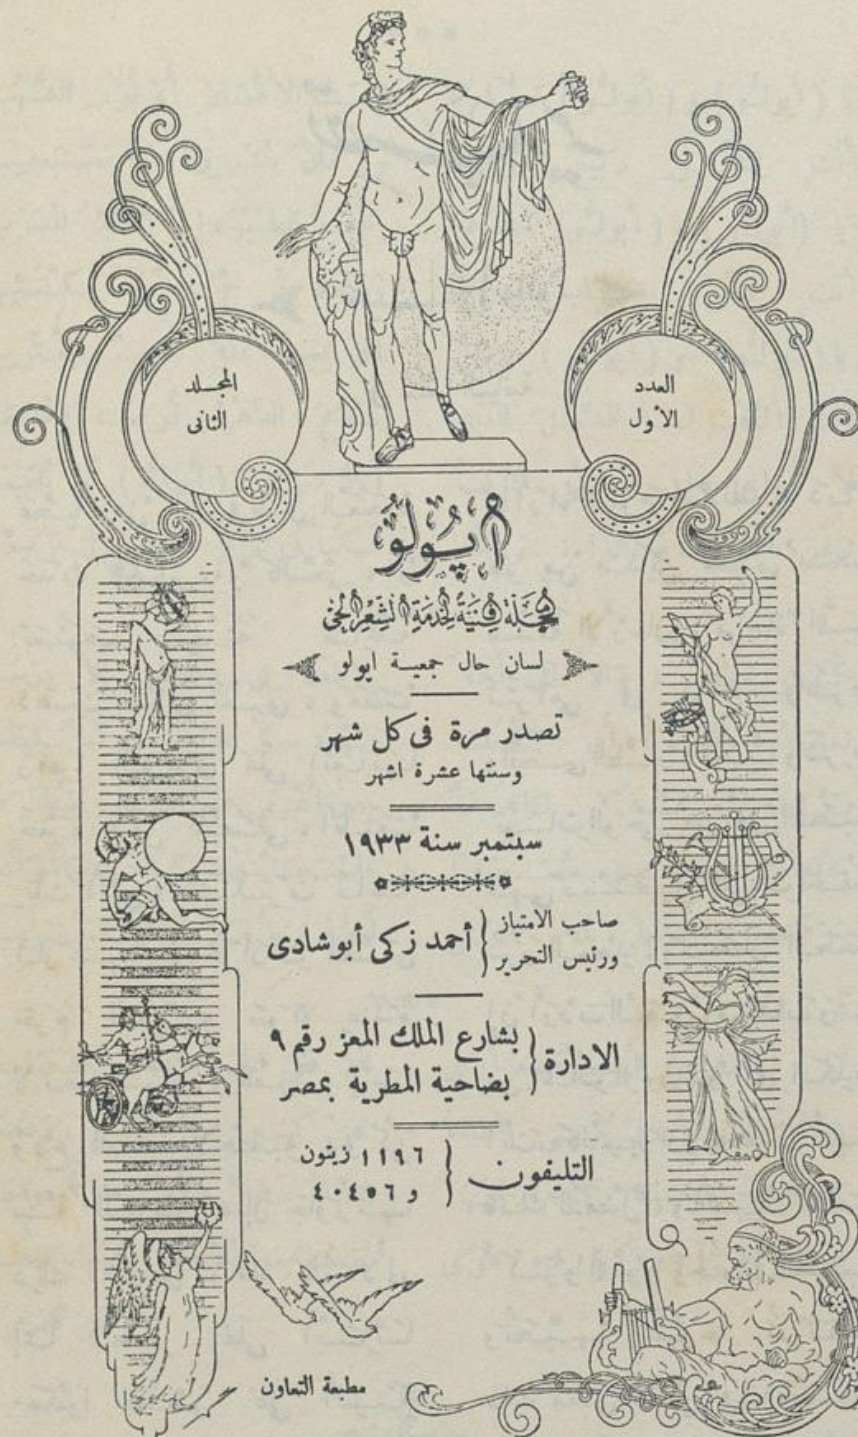 العدد
الأول
المجلد
الثانى
أپولو
مجلة فنية لخدمة الشعر الحى
لسان حال جمعية ابولو
تصدر مرة فى كل شهر
وسنتها عشرة اشهر
سبتمبر سنة ١٩٣٣
صاحب الامتياز
ورئيس التحرير
أحمد زكى أبو شادى
الادارة
بشارع الملك المعز رقم ٩
بضاحية المطرية بمصر
التليفون
١١٩٦ زيتون
و ٤٠٤٥٦
مطبعة التعاون